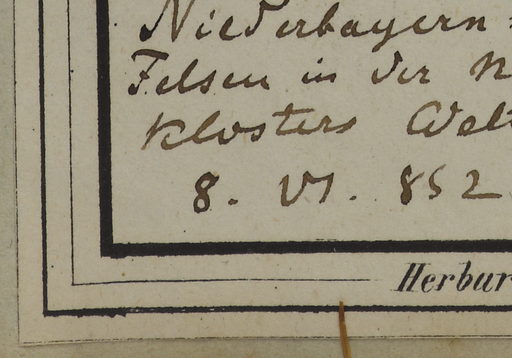 Niederbayern:
Felsen in der N
Klosters Welt
8. VI. 852
Herbar